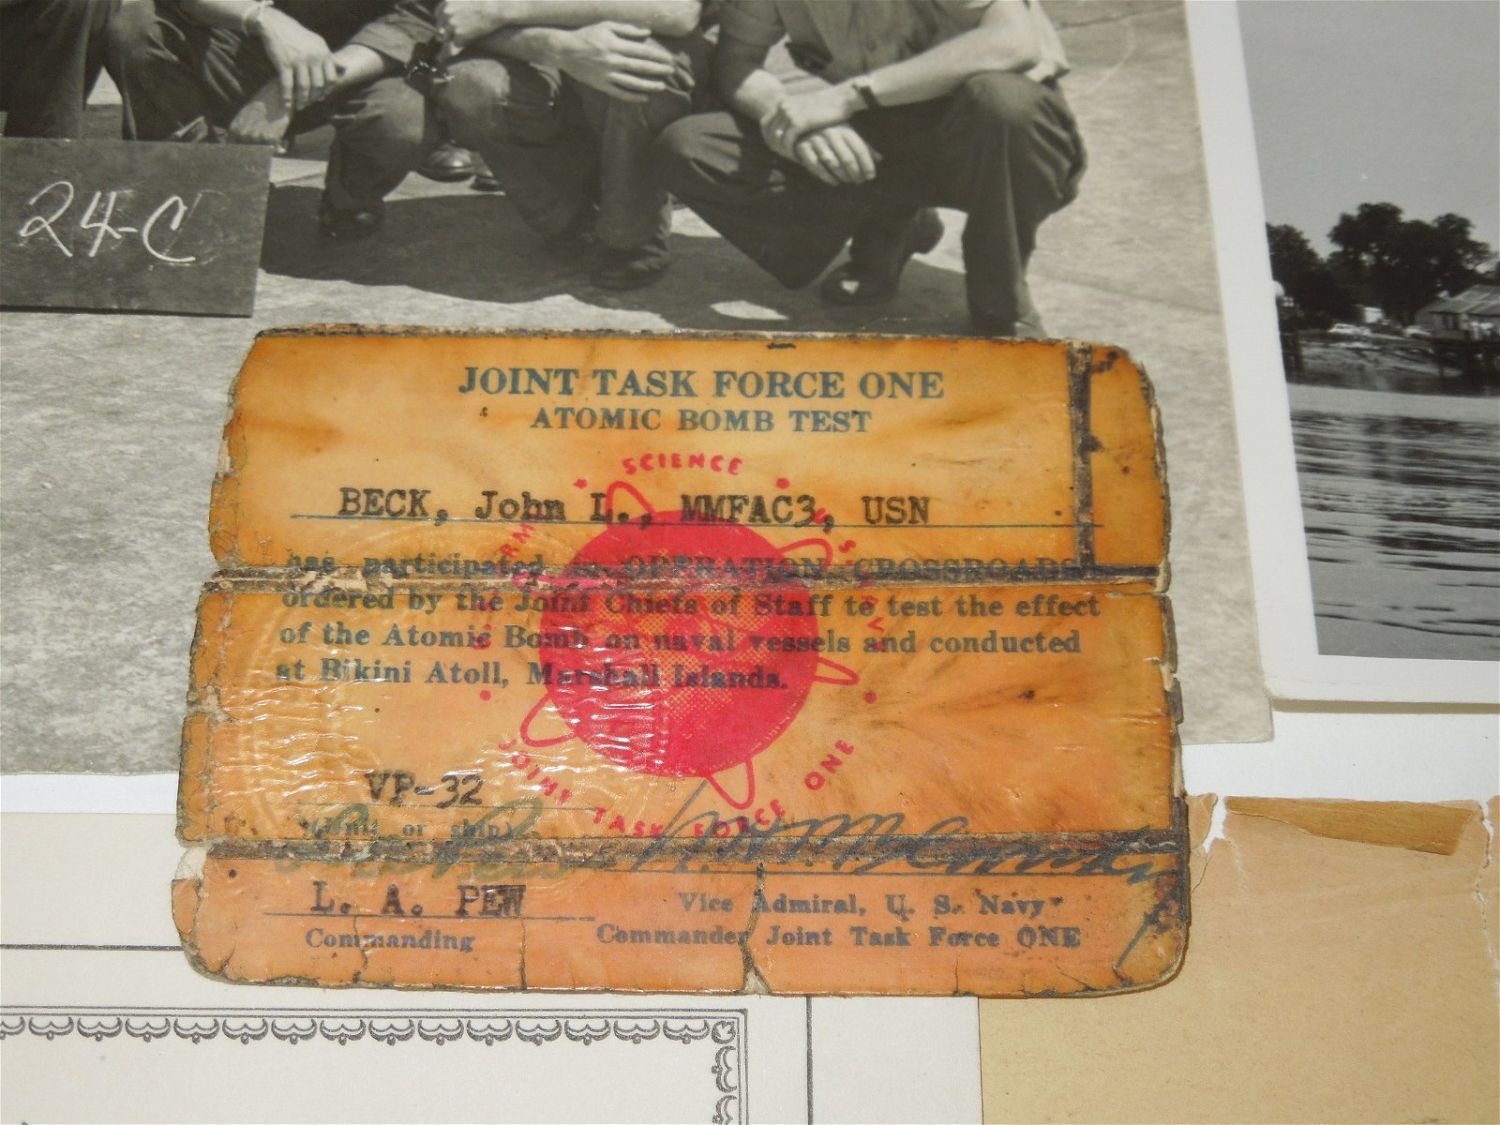 24-C
JOINT TASK FORCE ONE
ATOMIC BOMB TEST
SCIENCE
BECK, John L., MMFAC3, USN
has participated in OPERATION CROSSROADS
ordered by the Joint Chiefs of Staff to test the effect
of the Atomic Bomb on naval vessels and conducted
at Bikini Atoll, Marshall Islands.
JOINT TASK FORCE ONE
VP-32
(Unit or ship)
L. A. PEW
Commanding
Vice Admiral, U. S. Navy
Commander Joint Task Force ONE